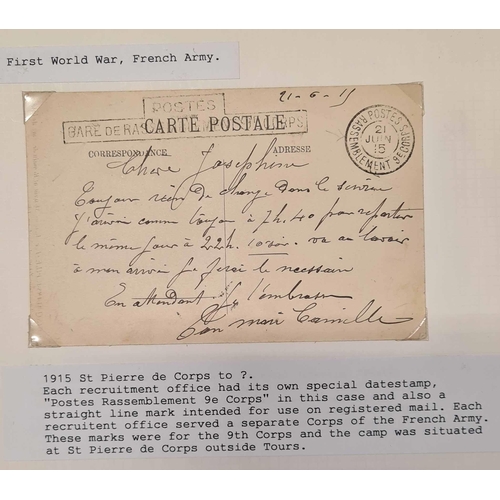 First World War, French Army.
21-6-15
POSTES
GARE DE RAS
CARTE POSTALE
POSTES RASSEMBLEMENT 9e CORPS
21
JUIN
15
CORRESPONDANCE
ADRESSE
Chere Josephine
Toujour rien De change Dans le service
J'arrive comme toujou à 7h.40 pour repartir
le même jour à 22h. 10 soir. va au lavoir
à mon arrivée je ferai le necessaire
En attendant je t'embrasse
Ton mari Camille
1915 St Pierre de Corps to ?.
Each recruitment office had its own special datestamp,
"Postes Rassemblement 9e Corps" in this case and also a
straight line mark intended for use on registered mail. Each
recruitent office served a separate Corps of the French Army.
These marks were for the 9th Corps and the camp was situated
at St Pierre de Corps outside Tours.